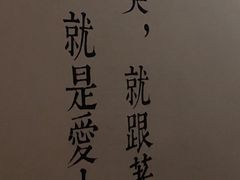 ，就跟著
就是愛